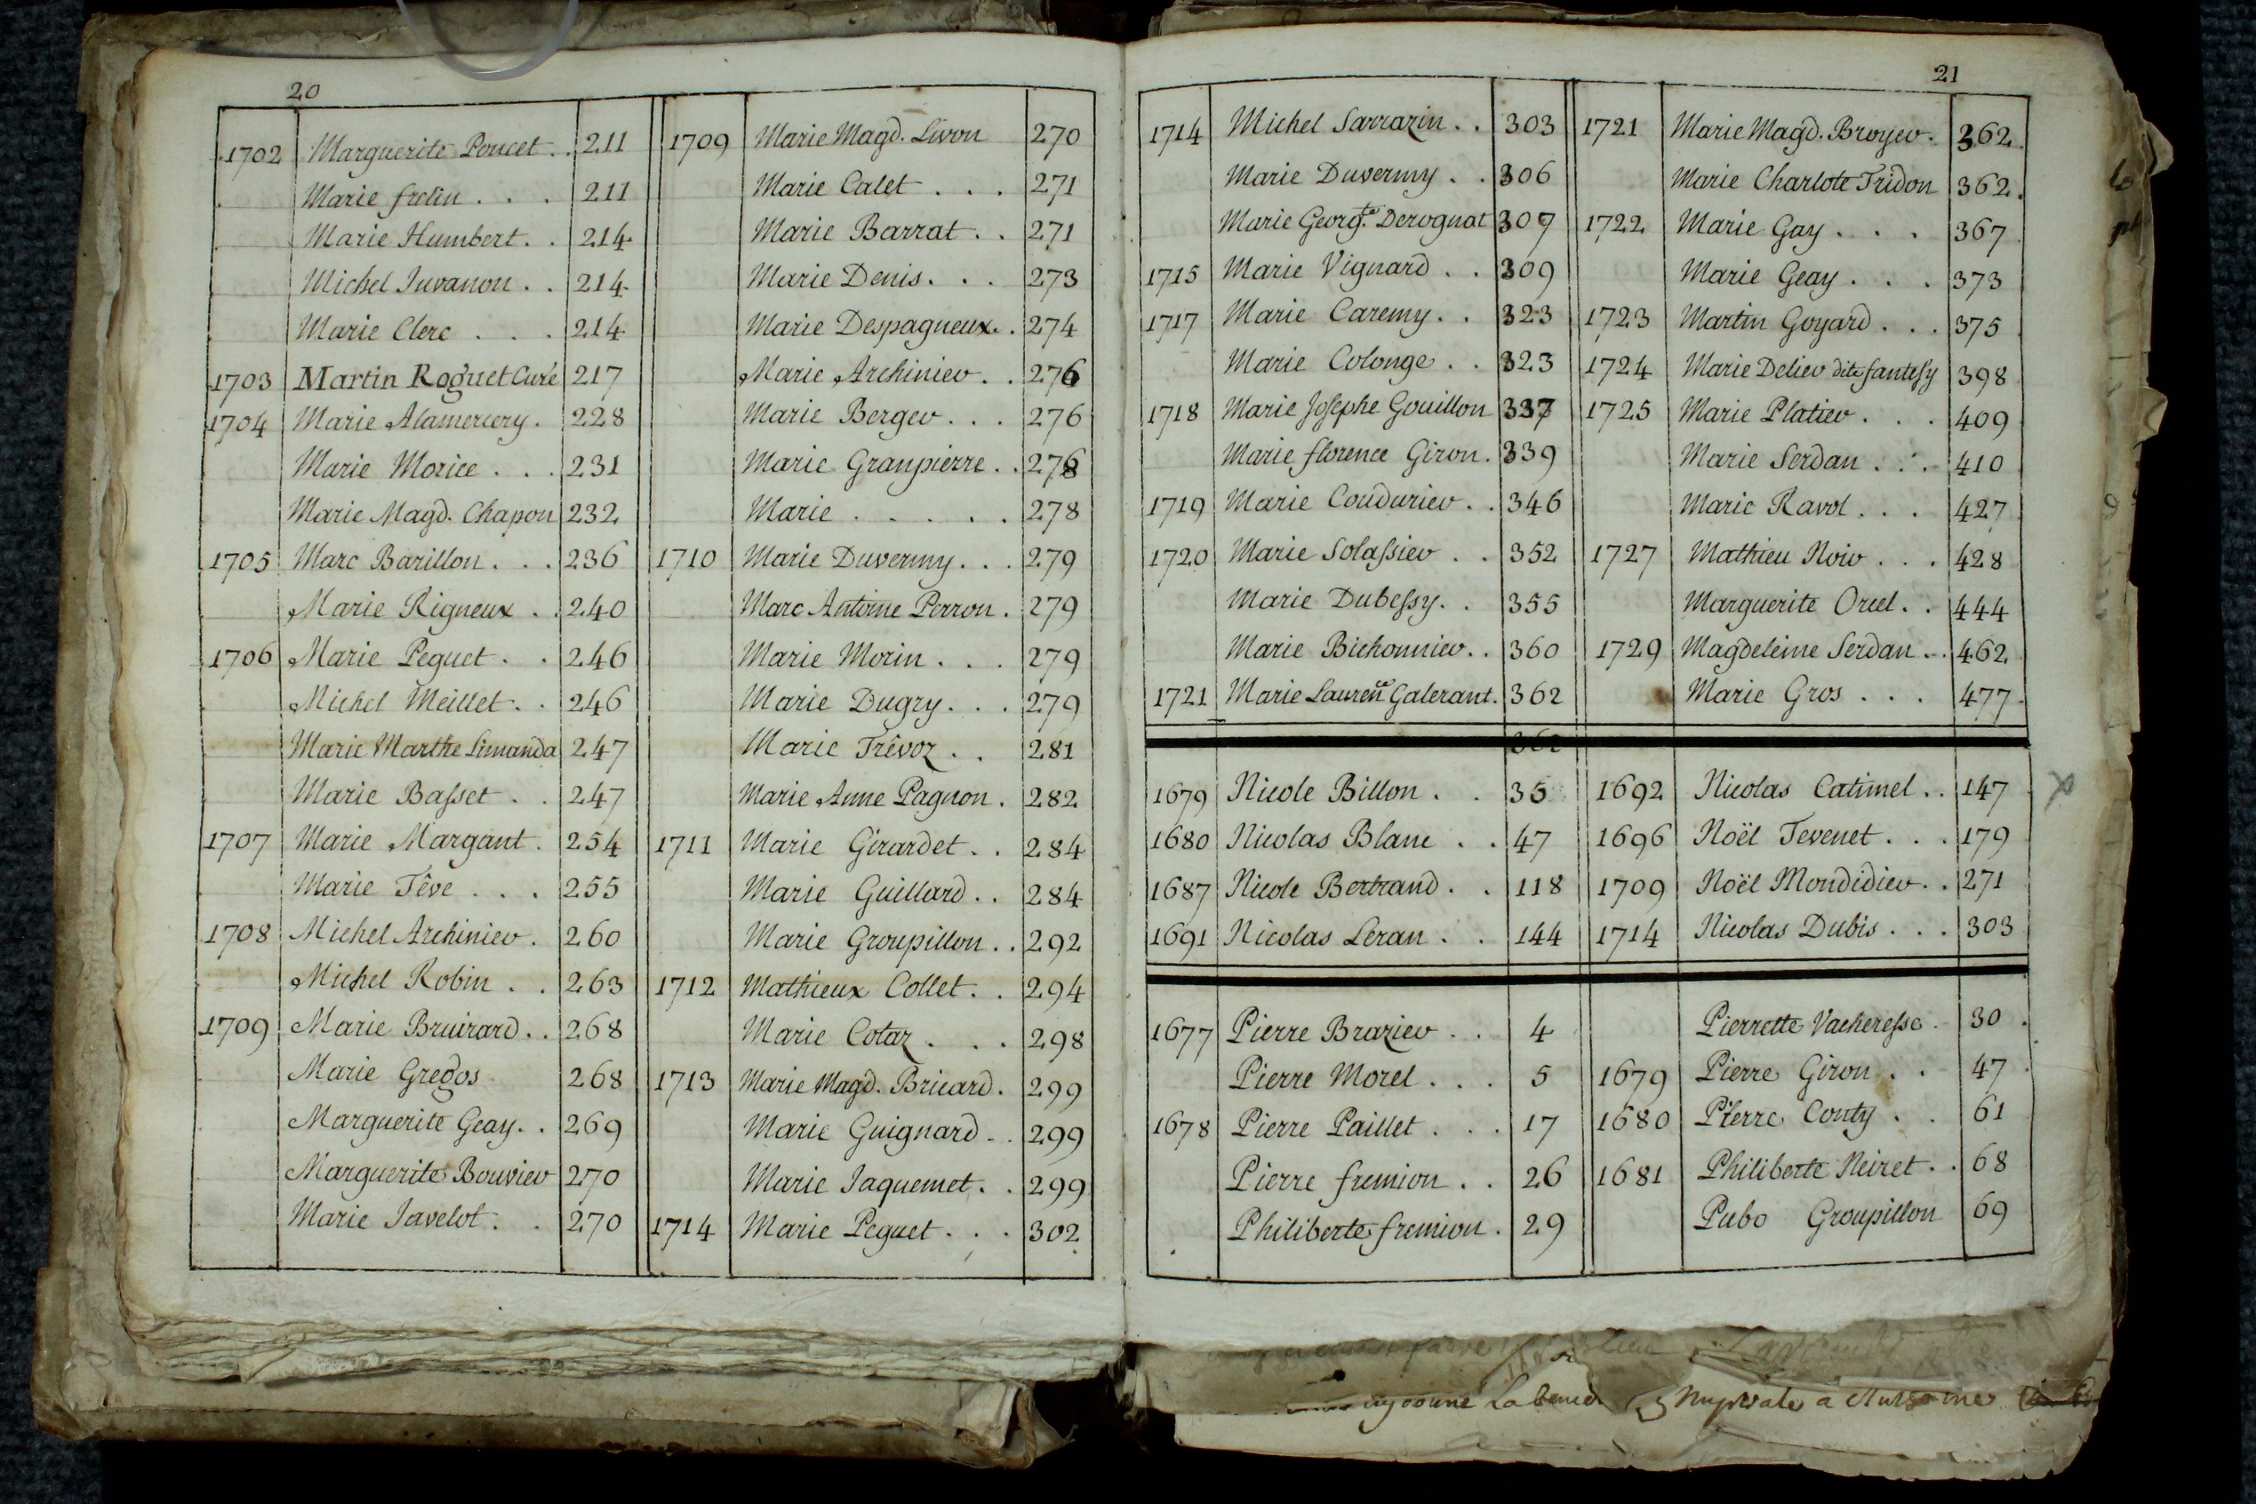 20
1702 Marguerite Poncet . . 211
Marie frelin . . . 211
Marie Humbert . . 214
Michel Juvanon . . 214
Marie Clerc . . . 214
1703 Martin Roguet Curé 217
1704 Marie Alamercery . 228
Marie Morice . . . 231
Marie Magd. Chapon 232
1705 Marc Barillon . . . 236
Marie Rigneux . . 240
1706 Marie Peguet . . 246
Michel Meillet . . 246
Marie Marthe Limanda 247
Marie Baſset . . 247
1707 Marie Margant . 254
Marie Têve . . . 255
1708 Michel Archinier . 260
Michel Robin . . 263
1709 Marie Bruirard . . 268
Marie Gregos 268
Marguerite Geay . . 269
Marguerite Bouvier 270
Marie Javelot . . 270
1709 Marie Magd. Livon 270
Marie Calet . . . 271
Marie Barrat . . 271
Marie Denis . . . 273
Marie Despagneux . . 274
Marie Archinier . . 276
Marie Berger . . . 276
Marie Granpierre . . 278
Marie . . . . . 278
1710 Marie Duvermy . . . 279
Marc Antoine Perron . 279
Marie Morin . . . 279
Marie Dugry . . . 279
Marie Trêvoz . . 281
Marie Anne Pagnon . 282
1711 Marie Girardet . . 284
Marie Guillard . . 284
Marie Groupillon . . 292
1712 Mathieux Collet . . 294
Marie Cotaz . . . 298
1713 Marie Magd. Bricard . 299
Marie Guignard . . 299
Marie Jaquemet . . 299
1714 Marie Peguet . . . 302
21
1714 Michel Sarrazin . . 303
Marie Duvermy . . 306
Marie Georgte. Derognat 307
1715 Marie Vignard . . 309
1717 Marie Caremy . . 323
Marie Colonge . . 323
1718 Marie Josephe Gouillon 337
Marie florence Giron . 339
1719 Marie Coudurier . . 346
1720 Marie Solaſsier . . 352
Marie Dubeſsy . . 355
Marie Bichonnier . . 360
1721 Marie Laurence Galerant . 362
1721 Marie Magd. Broyer . 362
Marie Charlote Tridon 362
1722 Marie Gay . . . 367
Marie Geay . . . 373
1723 Martin Goyard . . . 375
1724 Marie Delier dite fanteſy 398
1725 Marie Platier . . . 409
Marie Serdan . . . 410
Marie Ravol . . . 427
1727 Mathieu Noir . . . 428
Marguerite Orcel . . 444
1729 Magdeleine Serdan . . 462
Marie Gros . . . 477
362
1679 Nicole Billon . . 35
1680 Nicolas Blanc . . 47
1687 Nicole Bertrand . . 118
1691 Nicolas Leran . . 144
1692 Nicolas Catimel . . 147
1696 Noël Tevenet . . . 179
1709 Noël Mondidier . . 271
1714 Nicolas Dubis . . . 303
1677 Pierre Brazier . . 4
Pierre Morel . . . 5
1678 Pierre Paillet . . . 17
Pierre fremion . . 26
Philiberte fremion . 29
Pierrette Vachereſse . 30
1679 Pierre Giron . . 47
1680 Pierre Conty . . 61
1681 Philiberte Neiret . . 68
Groupillon 69